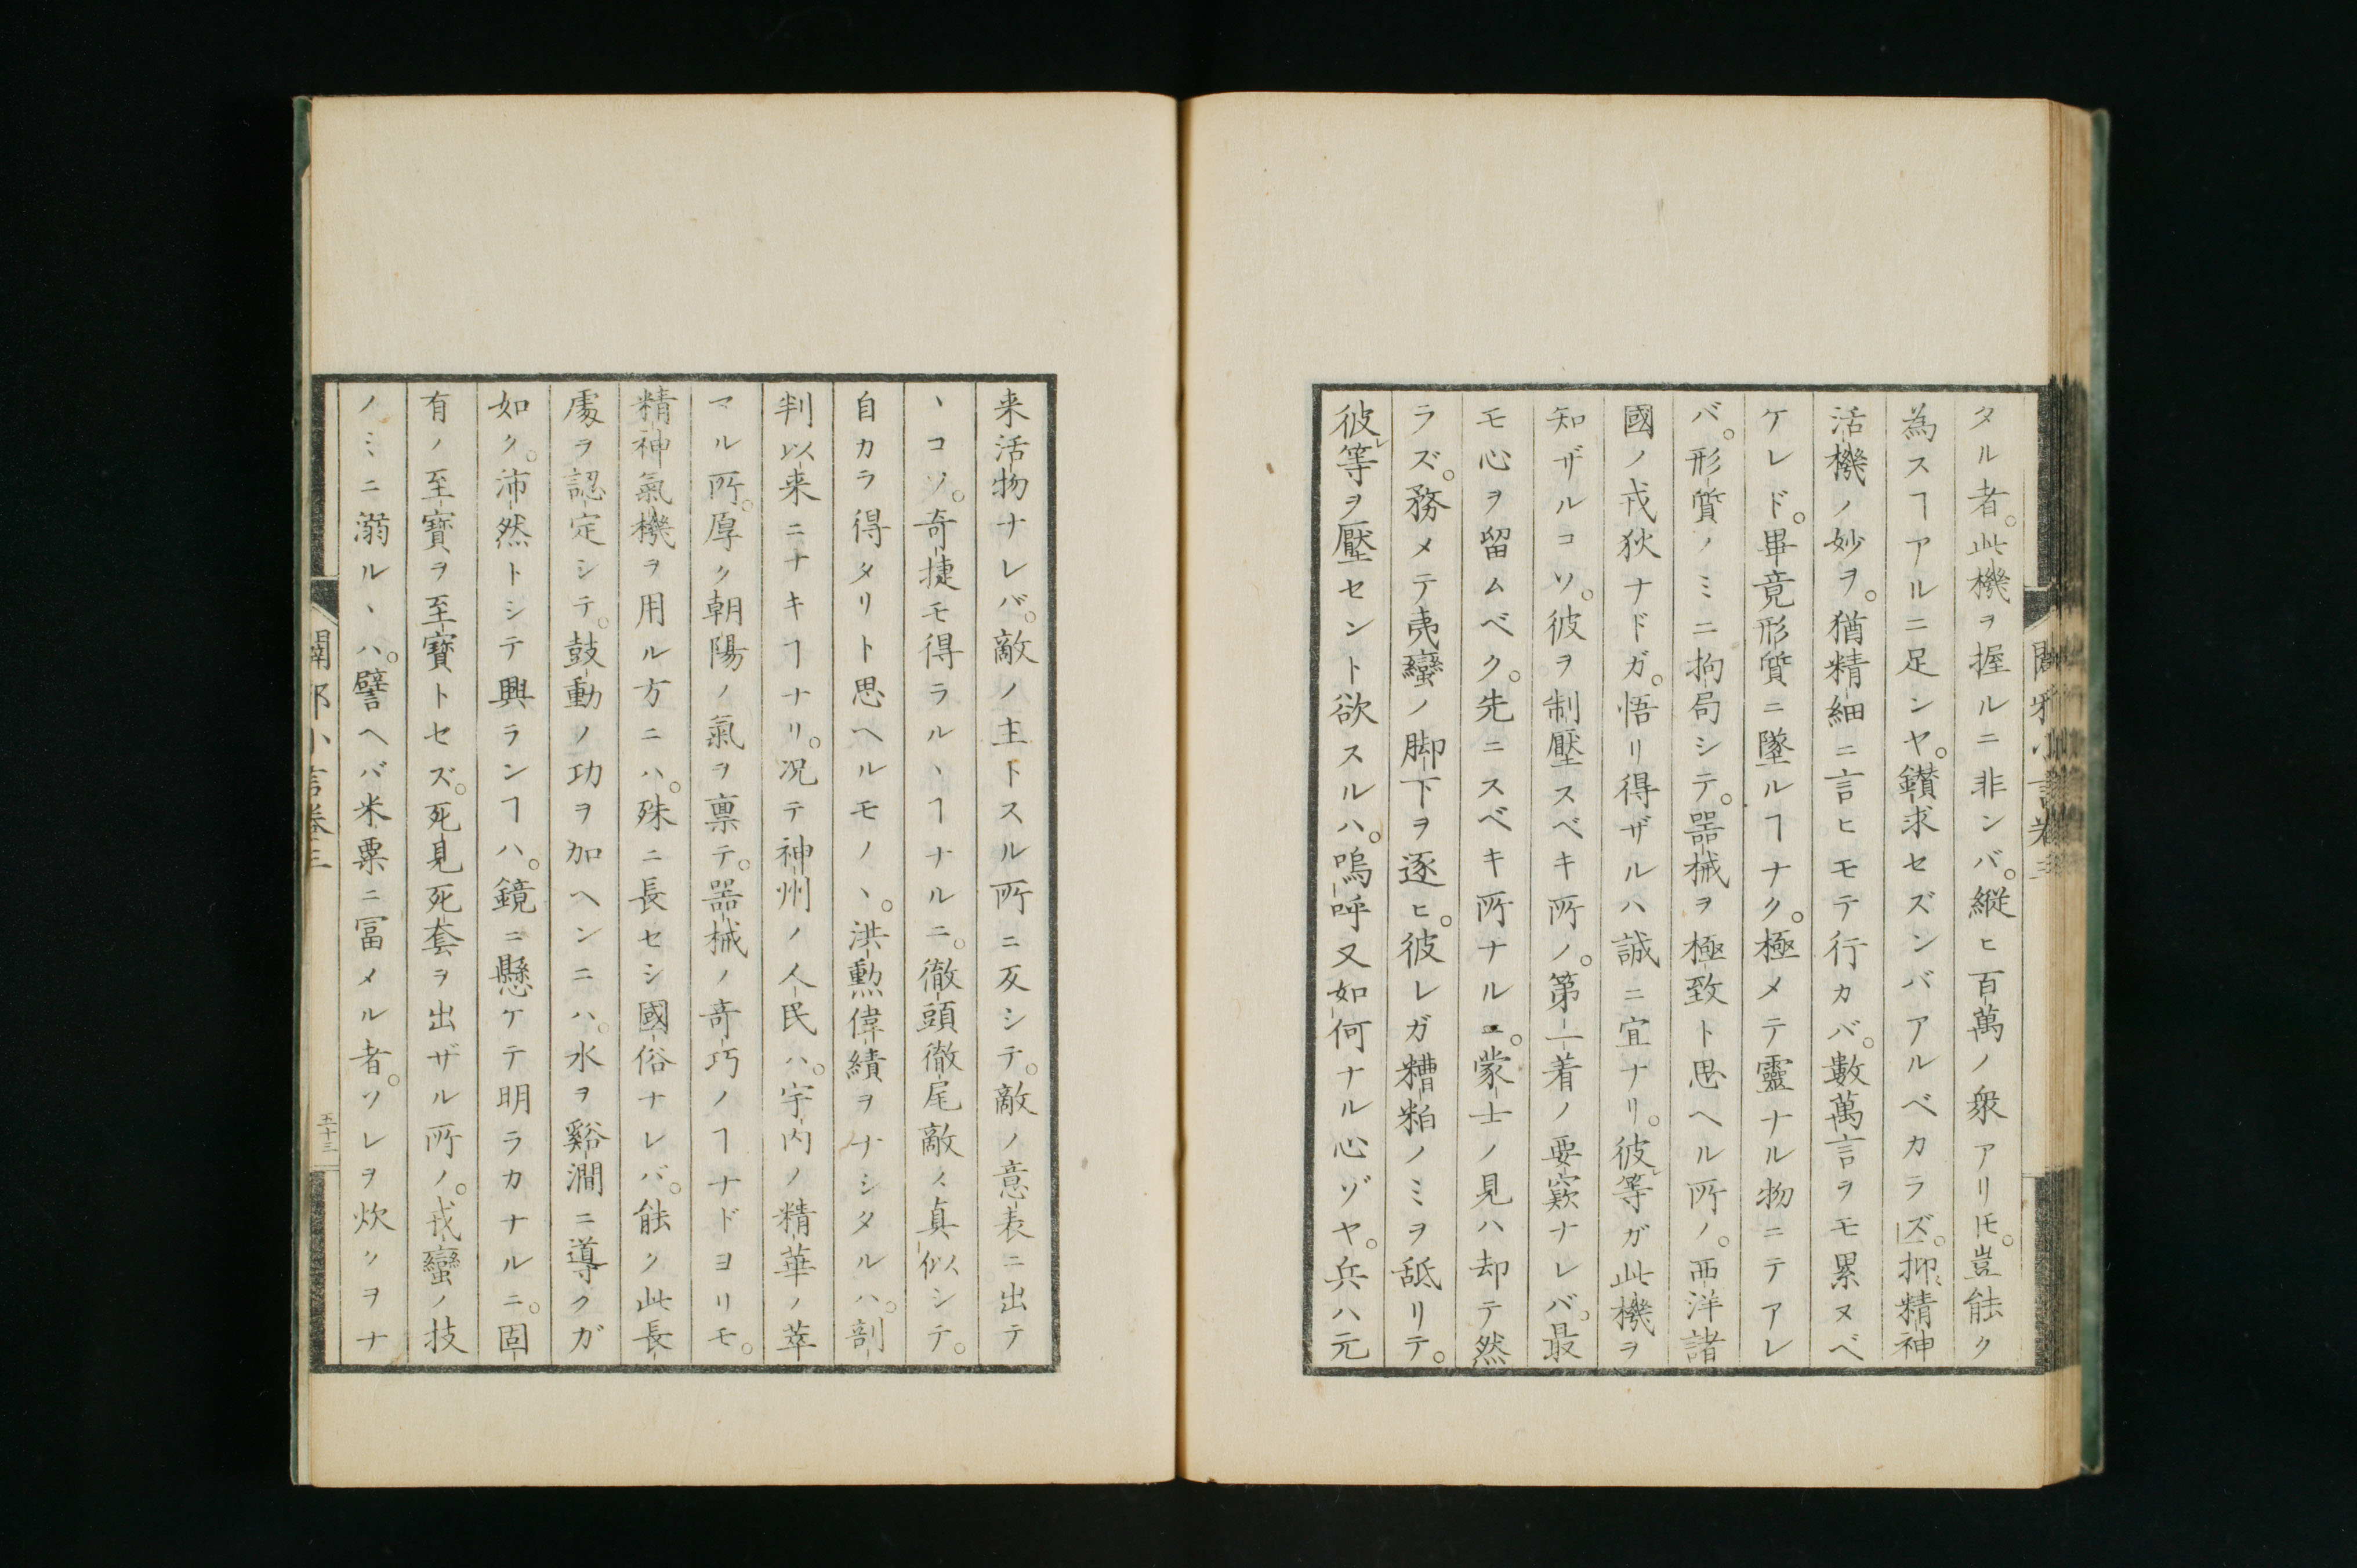 タル者。此機ヲ握ルニ非ンバ。縦ヒ百萬ノ衆アリ𪜈。豈能ク
為スヿアルニ足ンヤ。鑚求セズンバアルベカラズ。抑精神
活機ノ妙ヲ。猶精細ニ言ヒモテ行カバ。數萬言ヲモ累ヌベ
ケレド。畢竟形質ニ墜ルヿナク。極メテ靈ナル物ニテアレ
バ。形質ノミニ拘局シテ。器械ヲ極致ト思ヘル所ノ。西洋諸
國ノ戎狄ナドガ。悟リ得ザルハ誠ニ宜ナリ。彼レ等ガ此機ヲ
知ザルコソ。彼ヲ制壓スベキ所ノ。第一着ノ要窾ナレバ。最
モ心ヲ留ムベク。先ニスベキ所ナルニ。蒙士ノ見ハ却テ然
ラズ。務メテ夷蠻ノ脚下ヲ逐ヒ。彼レガ糟粕ノミヲ舐リテ。
彼レ等ヲ壓セント欲スルハ。嗚呼又如何ナル心ゾヤ。兵ハ元
闢邪小言卷三
来活物ナレバ。敵ノ主トスル所ニ反シテ。敵ノ意表ニ出テ
丶コソ。奇捷モ得ラル丶ヿナルニ。徹頭徹尾敵ノ真似シテ。
自カラ得タリト思ヘルモノ丶。洪勲偉績ヲナシタルハ。剖
判以来ニナキヿナリ。况テ神州ノ人民ハ。宇内ノ精華ノ萃
マル所。厚ク朝陽ノ氣ヲ禀テ。器械ノ奇巧ノヿナドヨリモ。
精神氣機ヲ用ル方ニハ。殊ニ長セシ國俗ナレバ。能ク此長
處ヲ認定シテ。鼓動ノ功ヲ加ヘンニハ。水ヲ谿澗ニ導クガ
如ク。沛然トシテ興ランヿハ。鏡ニ懸ケテ明ラカナルニ。固
有ノ至寶ヲ至寶トセズ。死見死套ヲ出ザル所ノ。戎蠻ノ技
ノミニ溺ル丶ハ。譬ヘバ米粟ニ冨メル者。ソレヲ炊クヲナ
闢邪小言卷三
五十三